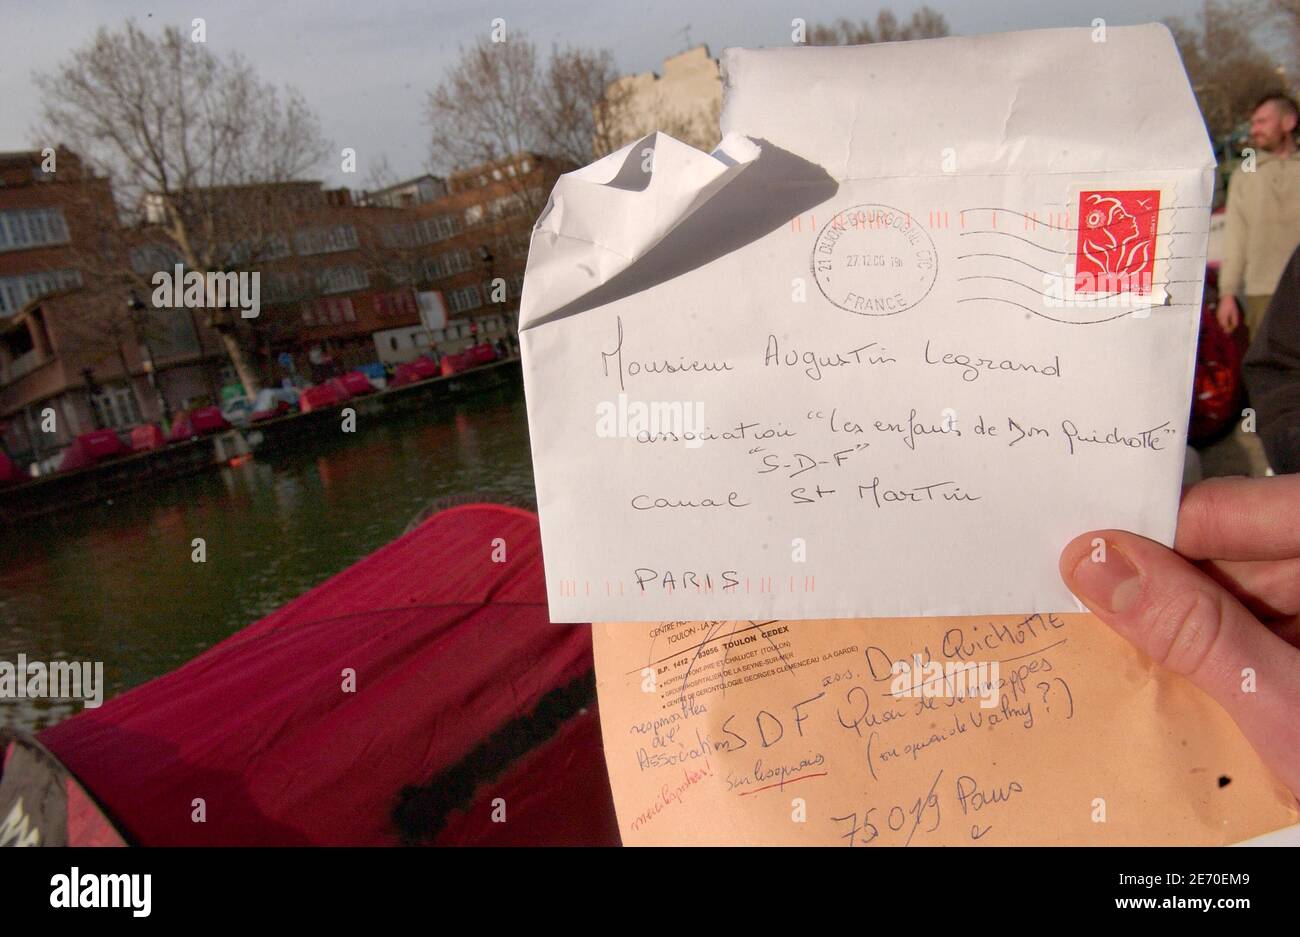 21 DIJON-BOURGOGNE CTC
27.12.06 19H
FRANCE
Monsieur Augustin Legrand
association "Les enfants de Don Quichotte"
"S-D-F"
canal St Martin
PARIS
TOULON - LA
B.P. 1412 - 83056 TOULON CEDEX
• HOPITAL FONT-PRE ET CHALUCET (TOULON)
• GROUPE HOSPITALIER DE LA SEYNE-SUR-MER
• CENTRE DE GERONTOLOGIE GEORGES CLEMENCEAU (LA GARDE)
responsables
de l'
Association
ass. DON QUICHOTTE
SDF Quai de Jemmapes
sur les quais (ou quai de Valmy?)
75019 Paris
alamy
Image ID: 2E70EM9
www.alamy.com